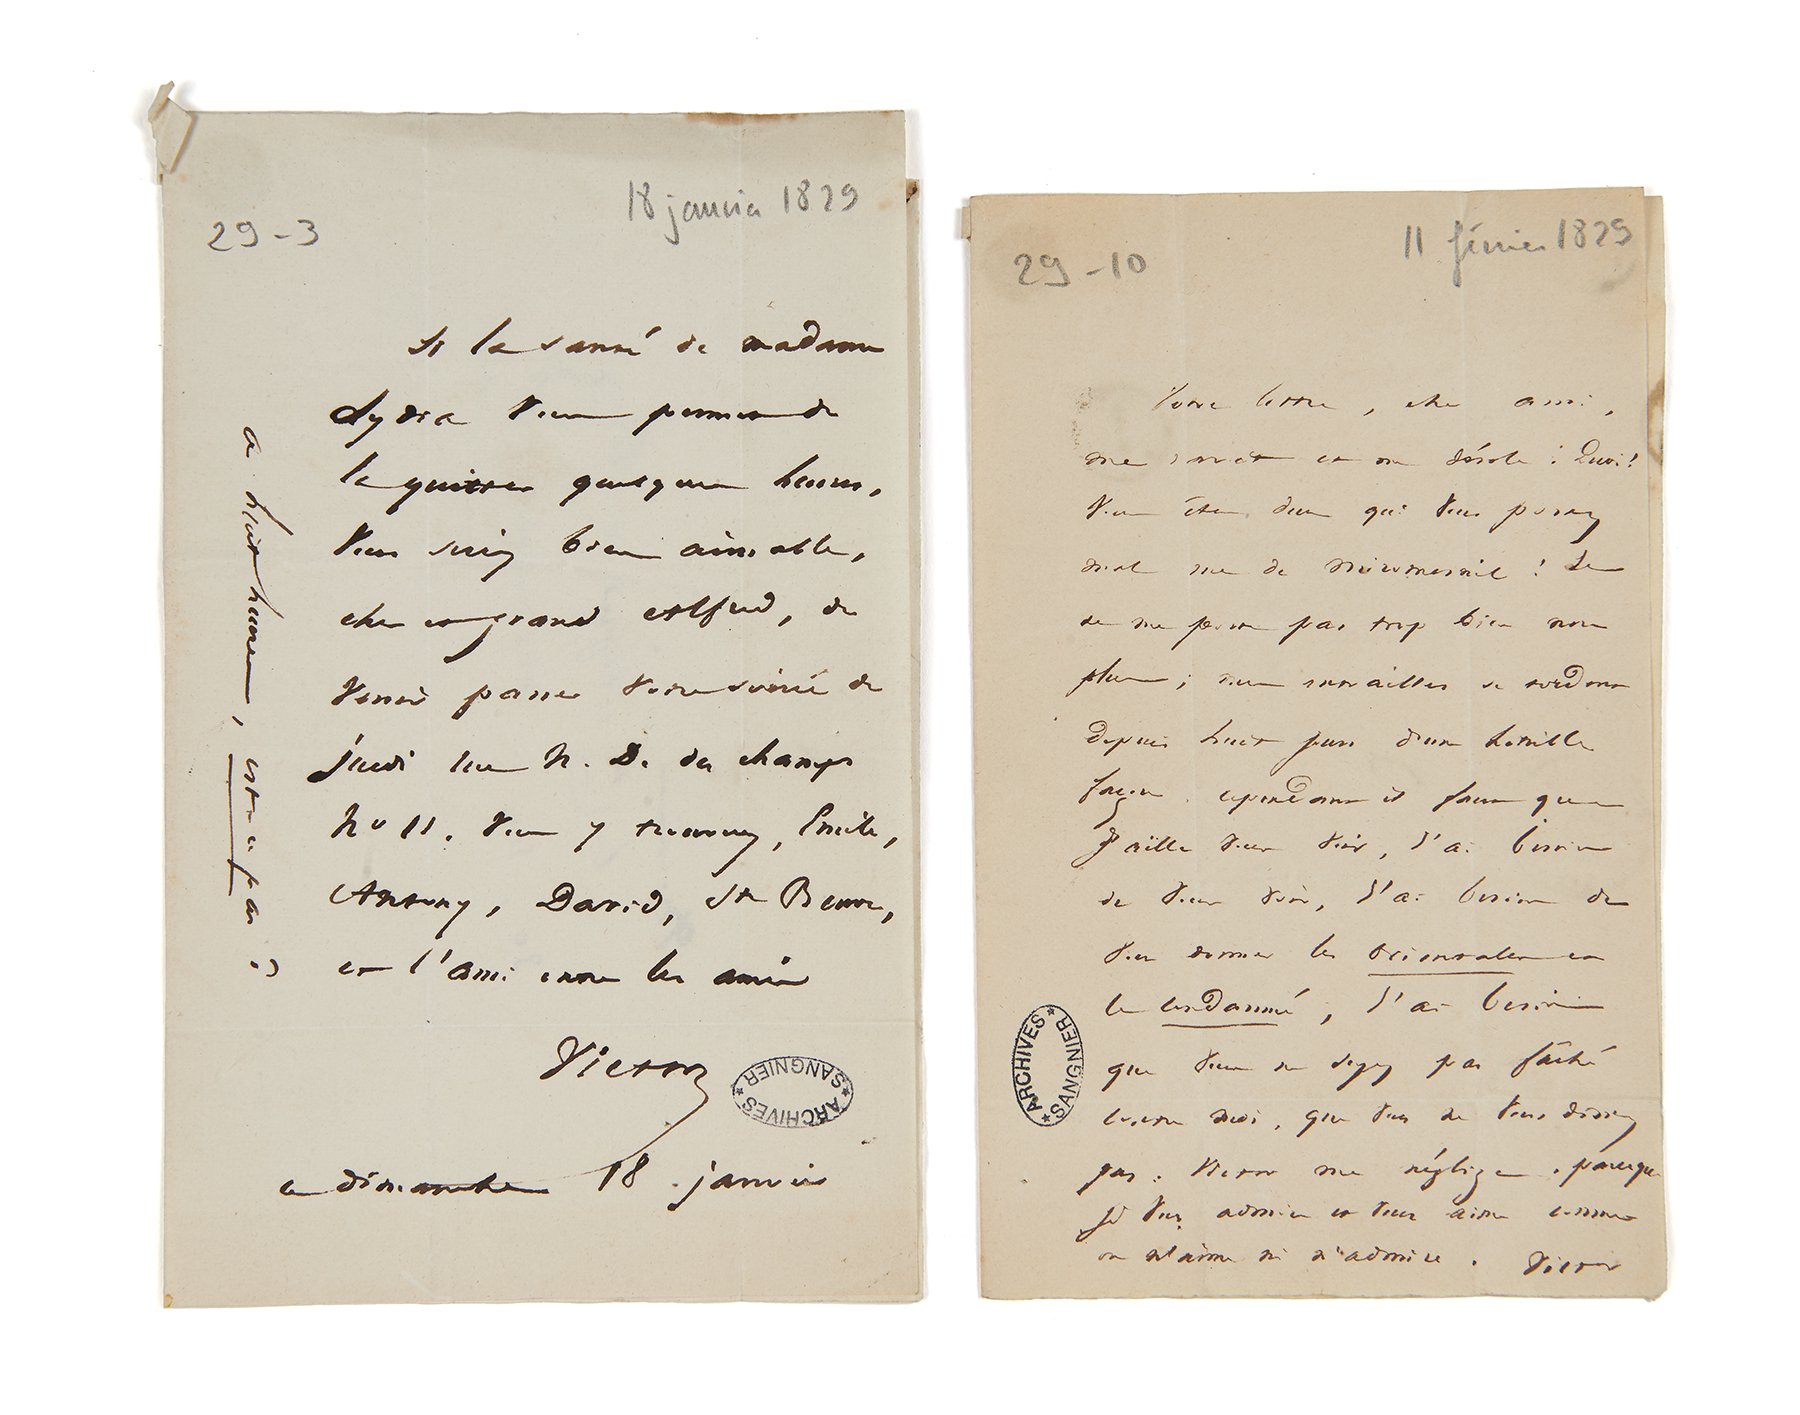 29-3
18 janvier 1829
Si la santé de madame
Lydia vous permet de
la quitter quelques heures,
vous seriez bien aimable,
cher et grand Alfred, de
venir passer votre soirée de
jeudi rue N. D. des champs
No 11. Vous y trouverez, Emile,
Antony, David, Ste Beuve,
et l'ami entre les amis
Victor
ce dimanche 18 janvier
a huit heures, est-ce pas ?
ARCHIVES
SANGNIER
29-10
11 février 1829
Votre lettre, cher ami,
me ravit et me désole : Quoi !
vous êtes deux qui vous portez
mal rue de Miromesnil ! Je
ne me porte pas trop bien non
plus ; mes entrailles se tordent
depuis huit jours d'une horrible
façon. cependant il faut que
j'aille vous voir, j'ai besoin
de vous voir, j'ai besoin de
vous donner les orientales et
le condamné, j'ai besoin
que vous ne soyez pas fâché
contre moi, que vous ne vous disiez
pas : Victor me néglige. parceque
je vous admire et vous aime comme
on n'aime ni n'admire. Victor
ARCHIVES
SANGNIER